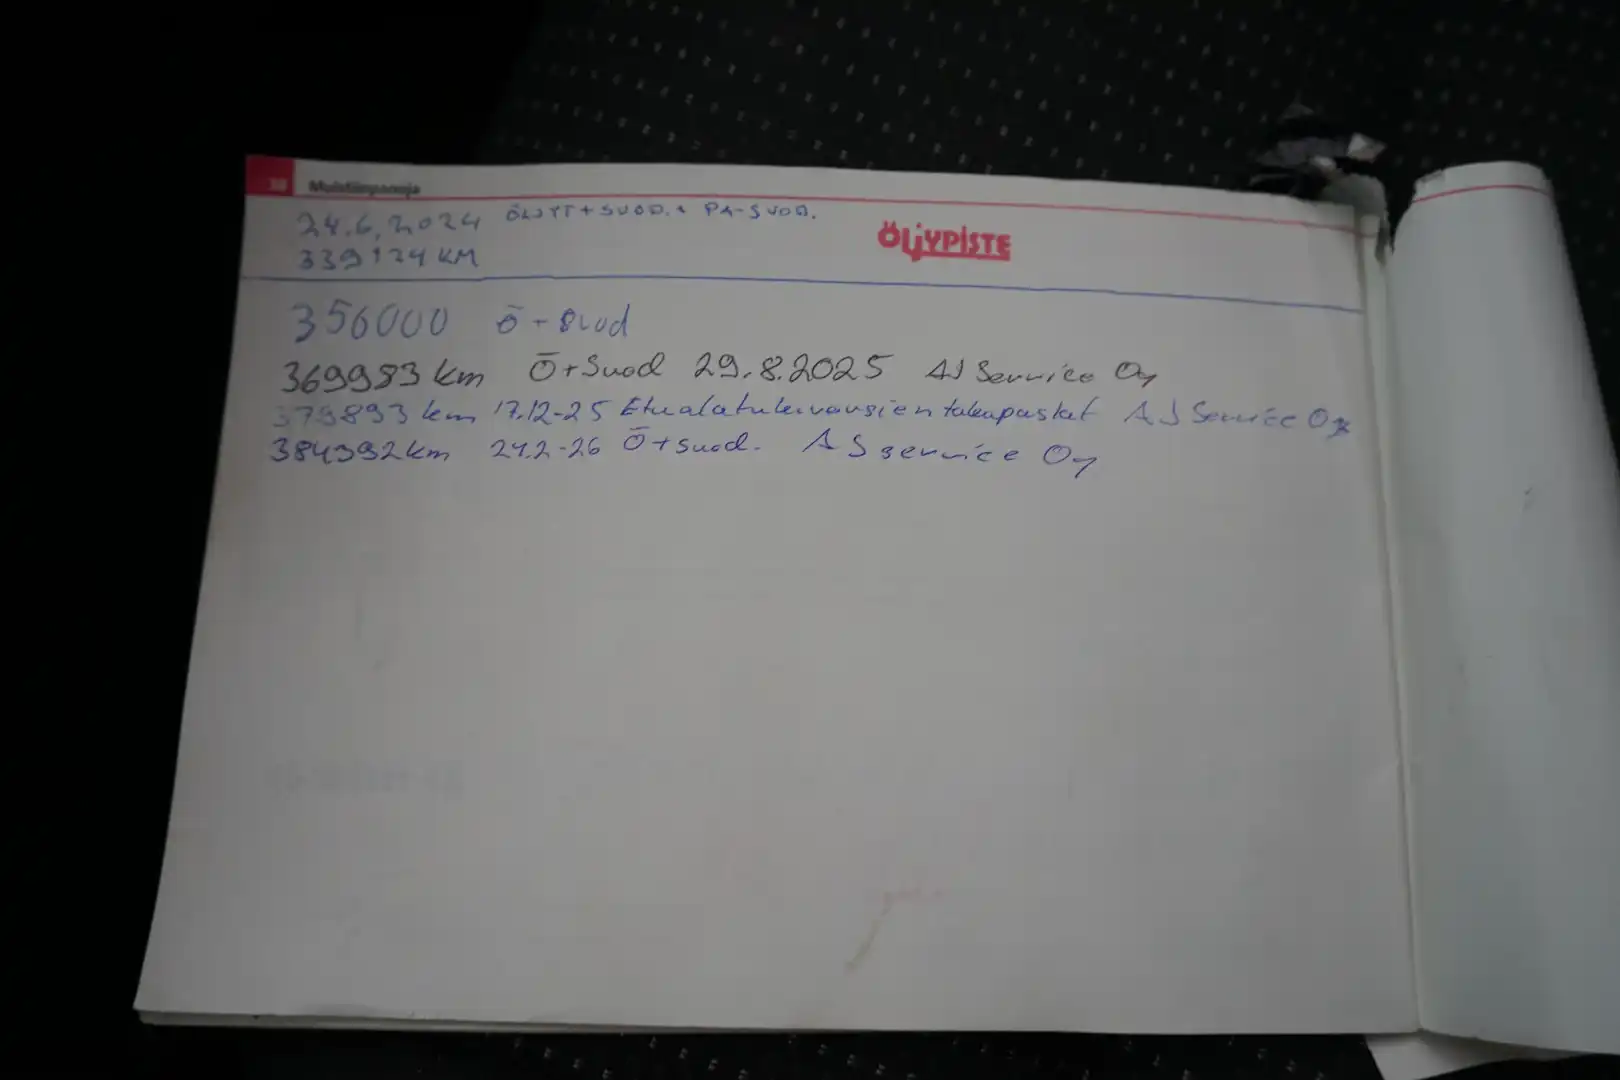 38 Muistiinpanoja
24.6.2024 ÖLJYT+SUOD. + PA-SUOD.
ÖLJYPISTE
339124 KM
356000 Ö-Suod
369983 km Ö+Suod 29.8.2025 AJ Service Oy
379893 km 17.12-25 Etualatukivarsien takapuslat AJ Service Oy
384392 km 24.2-26 Ö+suod. AJ Service Oy